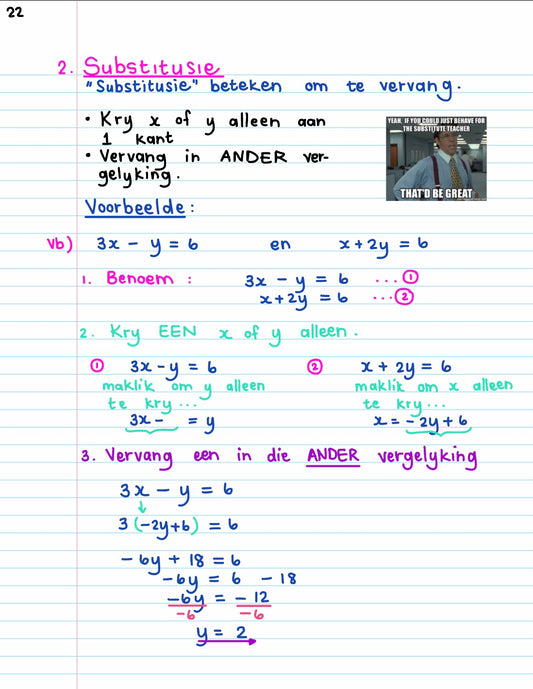 22
2. Substitusie
"Substitusie" beteken om te vervang.
• Kry x of y alleen aan
1 kant
• Vervang in ANDER ver-
gelyking.
YEAH, IF YOU COULD JUST BEHAVE FOR
THE SUBSTITUTE TEACHER
THAT'D BE GREAT
Voorbeelde:
Vb) 3x - y = 6 en x + 2y = 6
1. Benoem : 3x - y = 6 ...①
x + 2y = 6 ...②
2. Kry EEN x of y alleen.
① 3x - y = 6 ② x + 2y = 6
maklik om y alleen maklik om x alleen
te kry... te kry...
3x - = y x = -2y + 6
3. Vervang een in die ANDER vergelyking
3x - y = 6
↓
3 (-2y+6) = 6
-6y + 18 = 6
-6y = 6 - 18
-6y = -12
-6 -6
y = 2